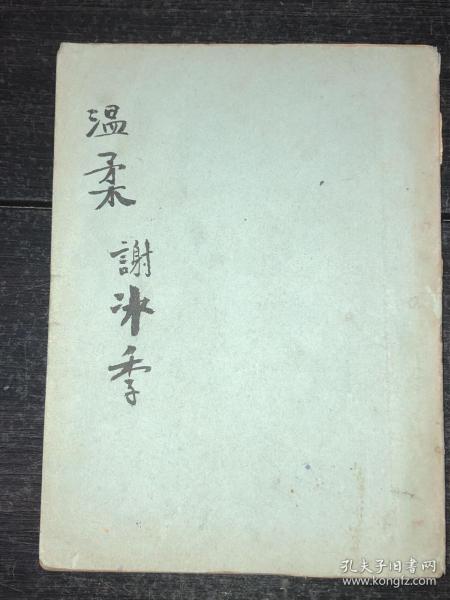 温柔
謝冰季
孔夫子旧书网
www.kongfz.com